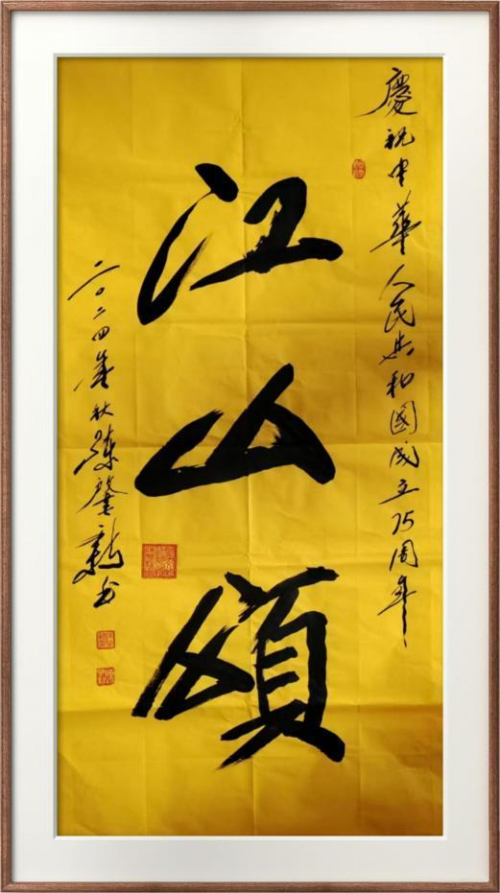 慶祝中華人民共和國成立75周年
江山頌
二〇二四年秋陳肇新书